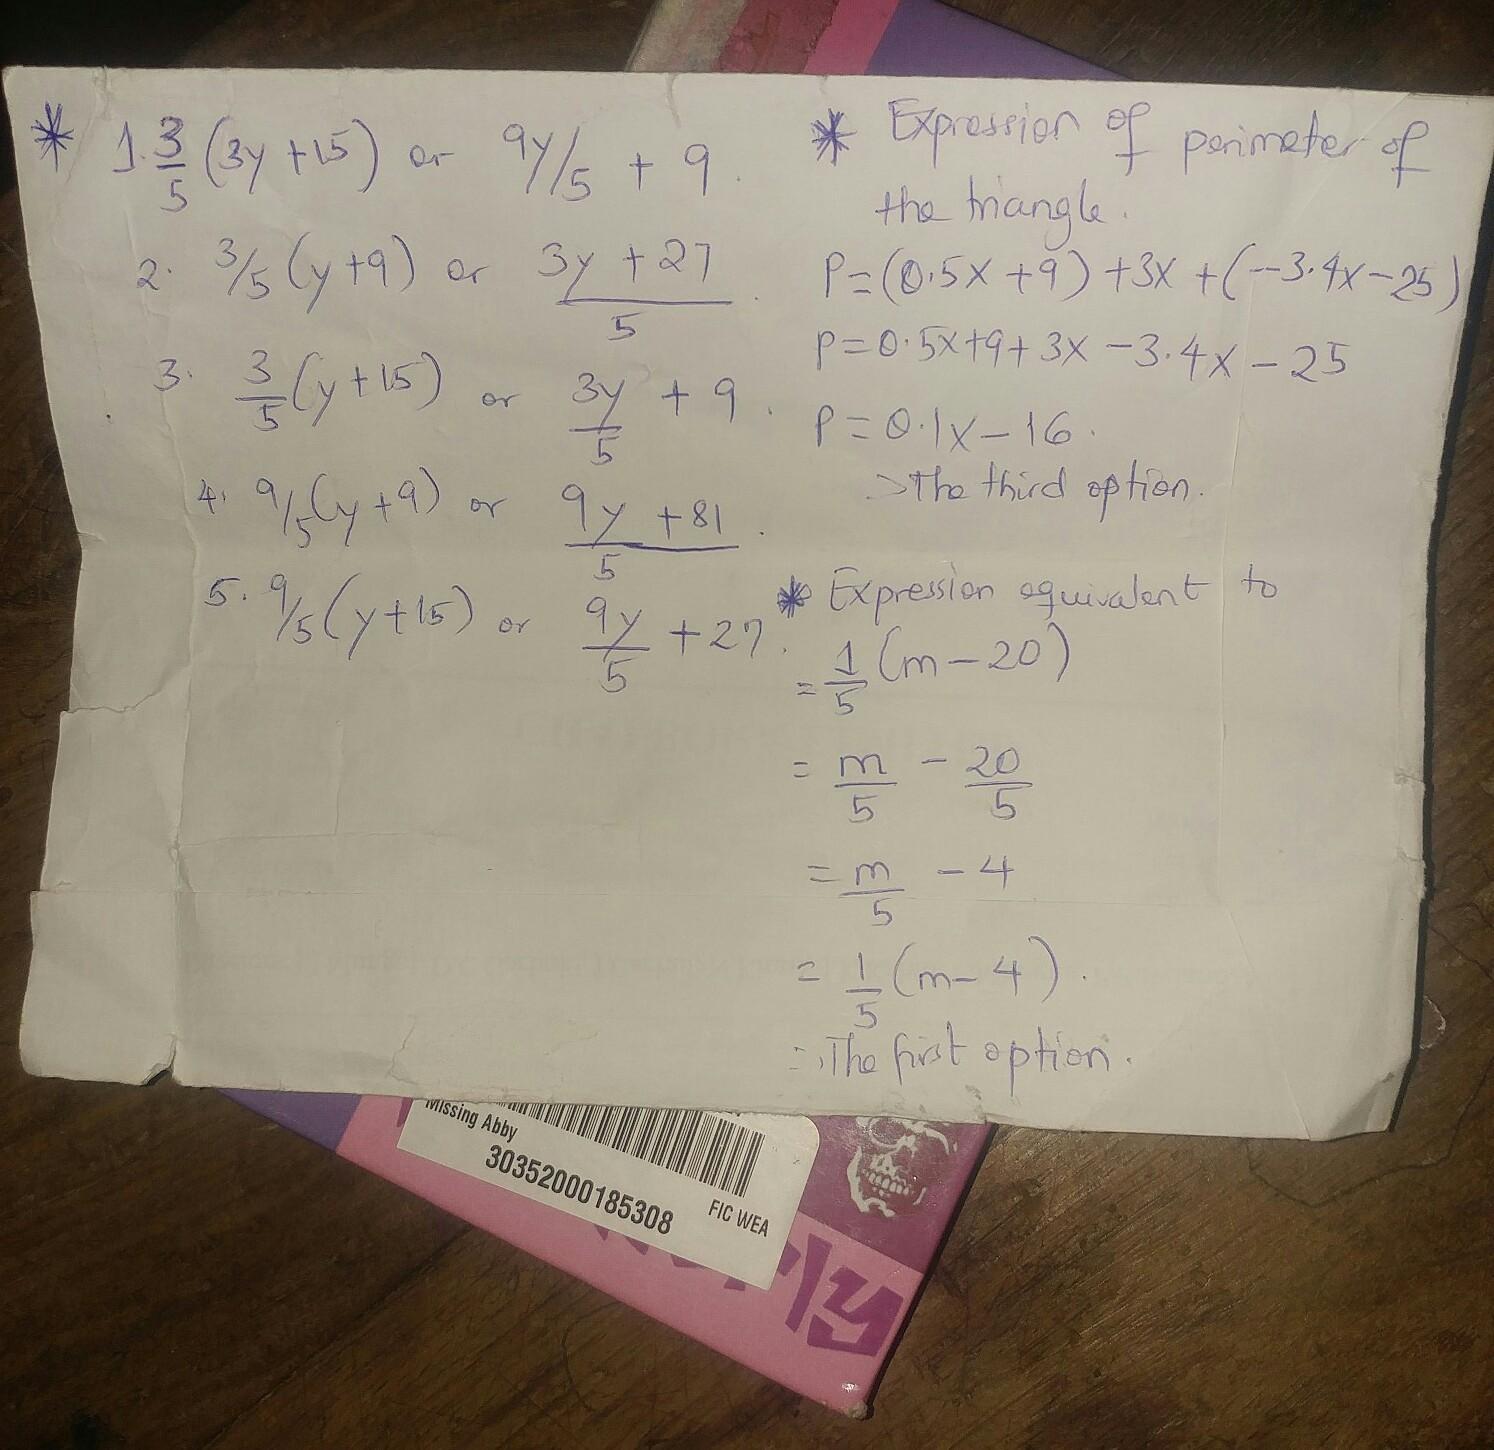 * 1. 3/5 (3y + 15) or 9y/5 + 9.
2. 3/5 (y + 9) or 3y + 27 / 5.
3. 3/5 (y + 15) or 3y/5 + 9.
4. 9/5 (y + 9) or 9y + 81 / 5.
5. 9/5 (y + 15) or 9y/5 + 27.
* Expression of perimeter of
the triangle.
P = (0.5x + 9) + 3x + (-3.4x - 25)
P = 0.5x + 9 + 3x - 3.4x - 25
P = 0.1x - 16.
>The third option.
* Expression equivalent to
= 1/5 (m - 20)
= m/5 - 20/5
= m/5 - 4
= 1/5 (m - 4).
∴ The first option.
Missing Abby
30352000185308
FIC WEA